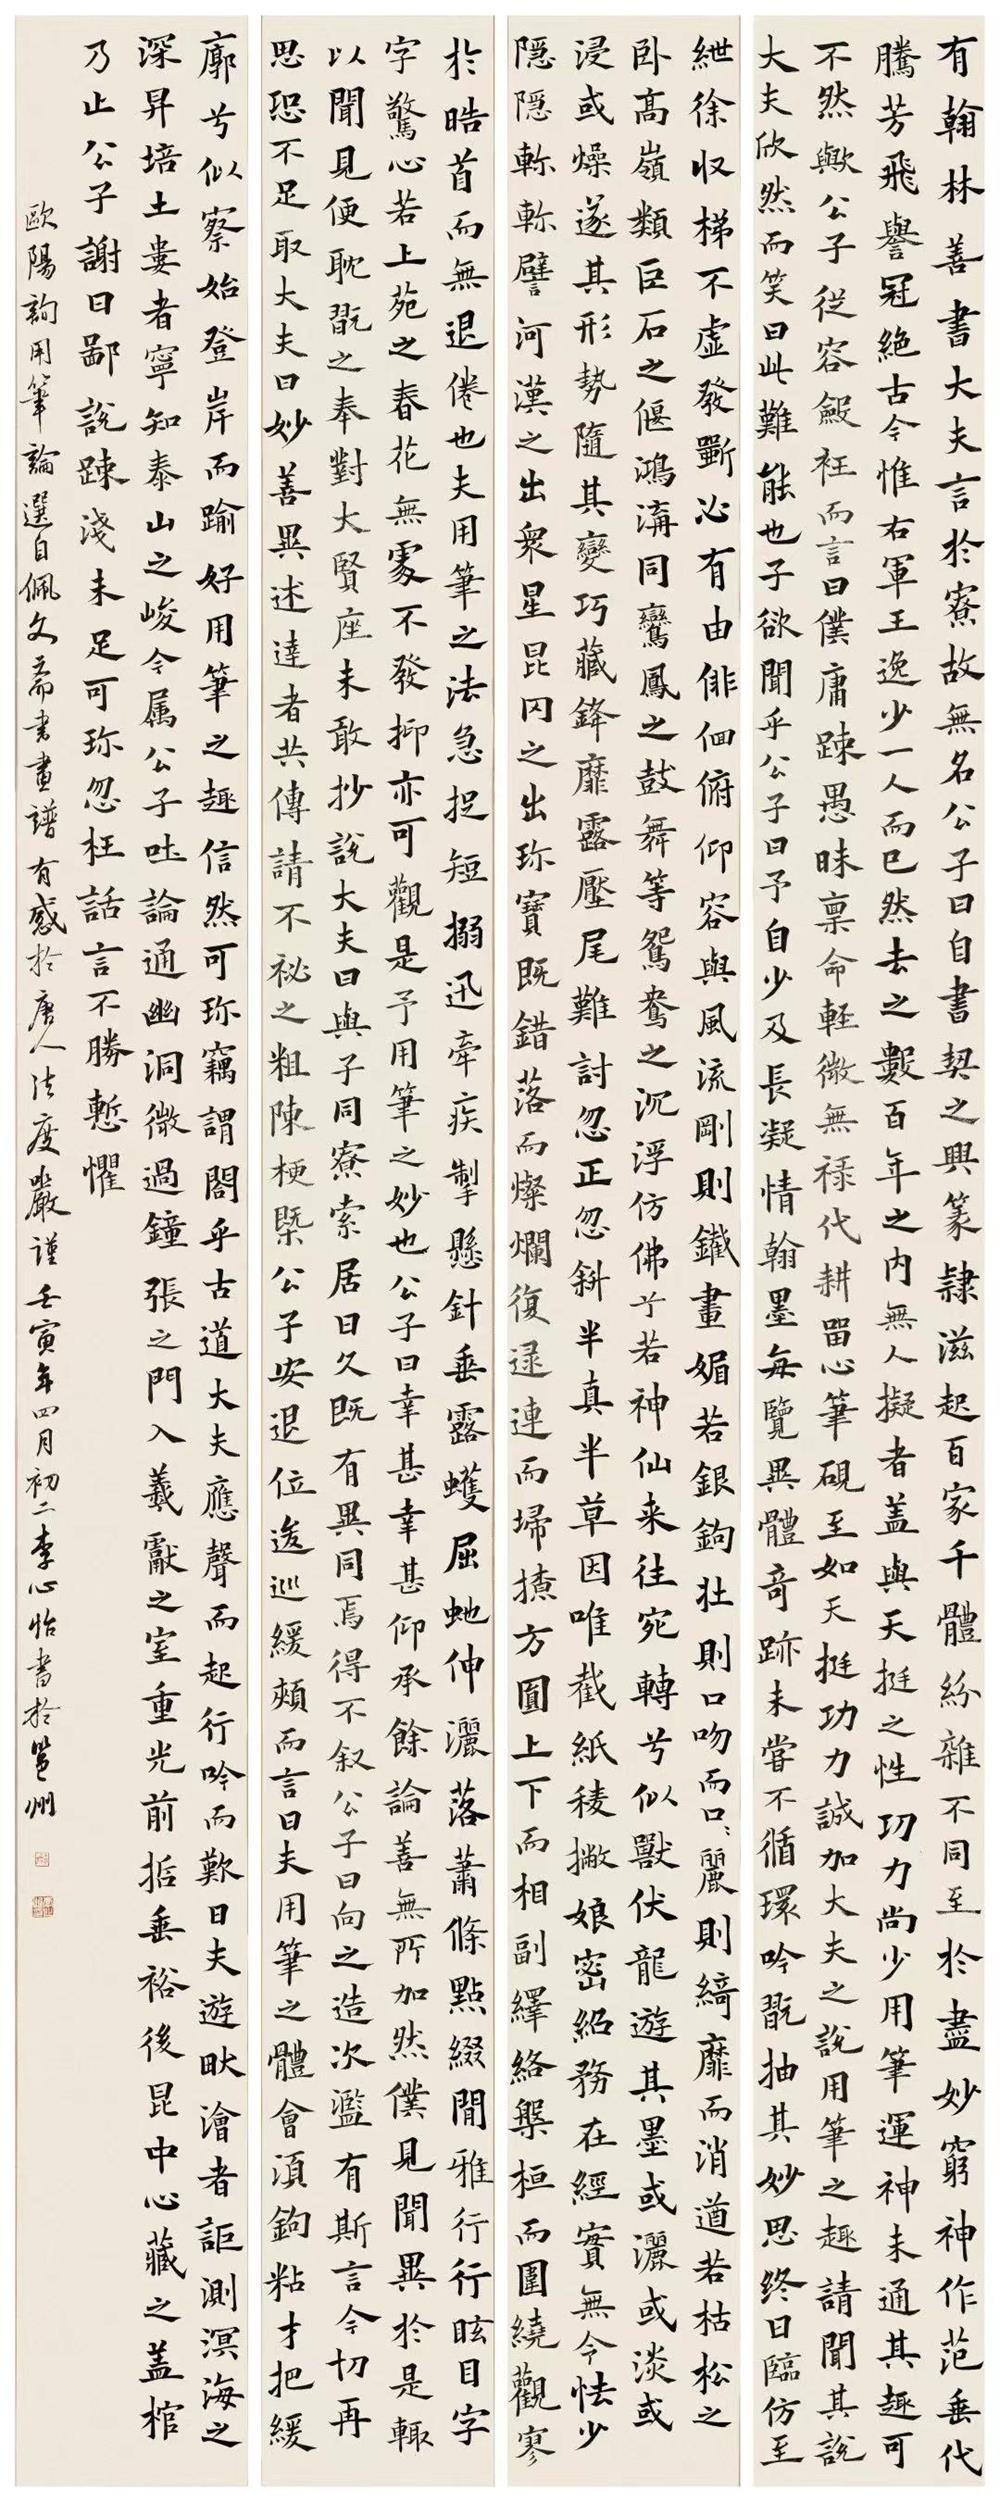 有翰林善書大夫言於寮故無名公子曰自書契之興篆隸滋起百家千體紛雜不同至於盡妙窮神作范垂代
騰芳飛譽冠絶古今惟右軍王逸少一人而已然去之數百年之内無人擬者盖與天挺之性功力尚少用筆運神未通其趣可
不然歟公子従容斂衽而言曰僕庸踈愚昧禀命輕微無禄代耕留心筆硯至如天挺功力誠加大夫之說用筆之趣請聞其說
大夫欣然而笑曰此難能也子欲聞乎公子曰予自少及長凝情翰墨每覽異體奇跡未嘗不循環吟翫抽其妙思終日臨仿至
於皓首而無退倦也夫用筆之法急捉短搦迅牽疾掣懸針垂露蠖屈虵伸灑落蕭條點綴閒雅行行眩目字
字驚心若上苑之春花無處不發抑亦可觀是予用筆之妙也公子曰幸甚幸甚仰承餘論善無所加然僕見聞異於是輙
以聞見便耽翫之奉對大賢座未敢抄說大夫曰與子同寮索居日久既有異同焉得不叙公子曰向之造次濫有斯言今切再
思恐不足取大夫曰妙善異述達者共傳請不秘之粗陳梗槩公子安退位逡巡緩頰而言曰夫用筆之體會湏鉤粘才把緩
紲徐收梯不虚發斵必有由俳佪俯仰容與風流剛則鐵畫媚若銀鉤壯則口吻而口:麗則綺靡而消遒若枯松之
卧高嶺類巨石之偃鴻溝同鸞鳳之鼓舞等鴛鴦之沉浮仿佛兮若神仙来往宛轉兮似獸伏龍遊其墨或灑或淡或
浸或燥遂其形勢隨其變巧藏鋒靡露壓尾難討忽正忽斜半真半草因唯截紙稜撇娘密紹務在經實無令怯少
隠隠軫軫譬河漢之出衆星昆冈之出珎寶既錯落而燦爛復逯連而埽撩方圓上下而相副繹絡槃桓而圍繞觀寥
廓兮似察始登岸而踰好用筆之趣信然可珎竊謂閤乎古道大夫應聲而起行吟而歎曰夫遊畎澮者詎測溟海之
深昇培土婁者寧知泰山之峻今属公子吐論通幽洞微過鐘張之門入羲獻之室重光前括垂裕後昆中心藏之盖棺
乃止公子謝曰鄙說踈淺未足可珎忽枉話言不勝慙懼
歐陽詢用筆論選自佩文斋書畫譜有感於唐人法度嚴謹壬寅年四月初二李心怡書於邕州